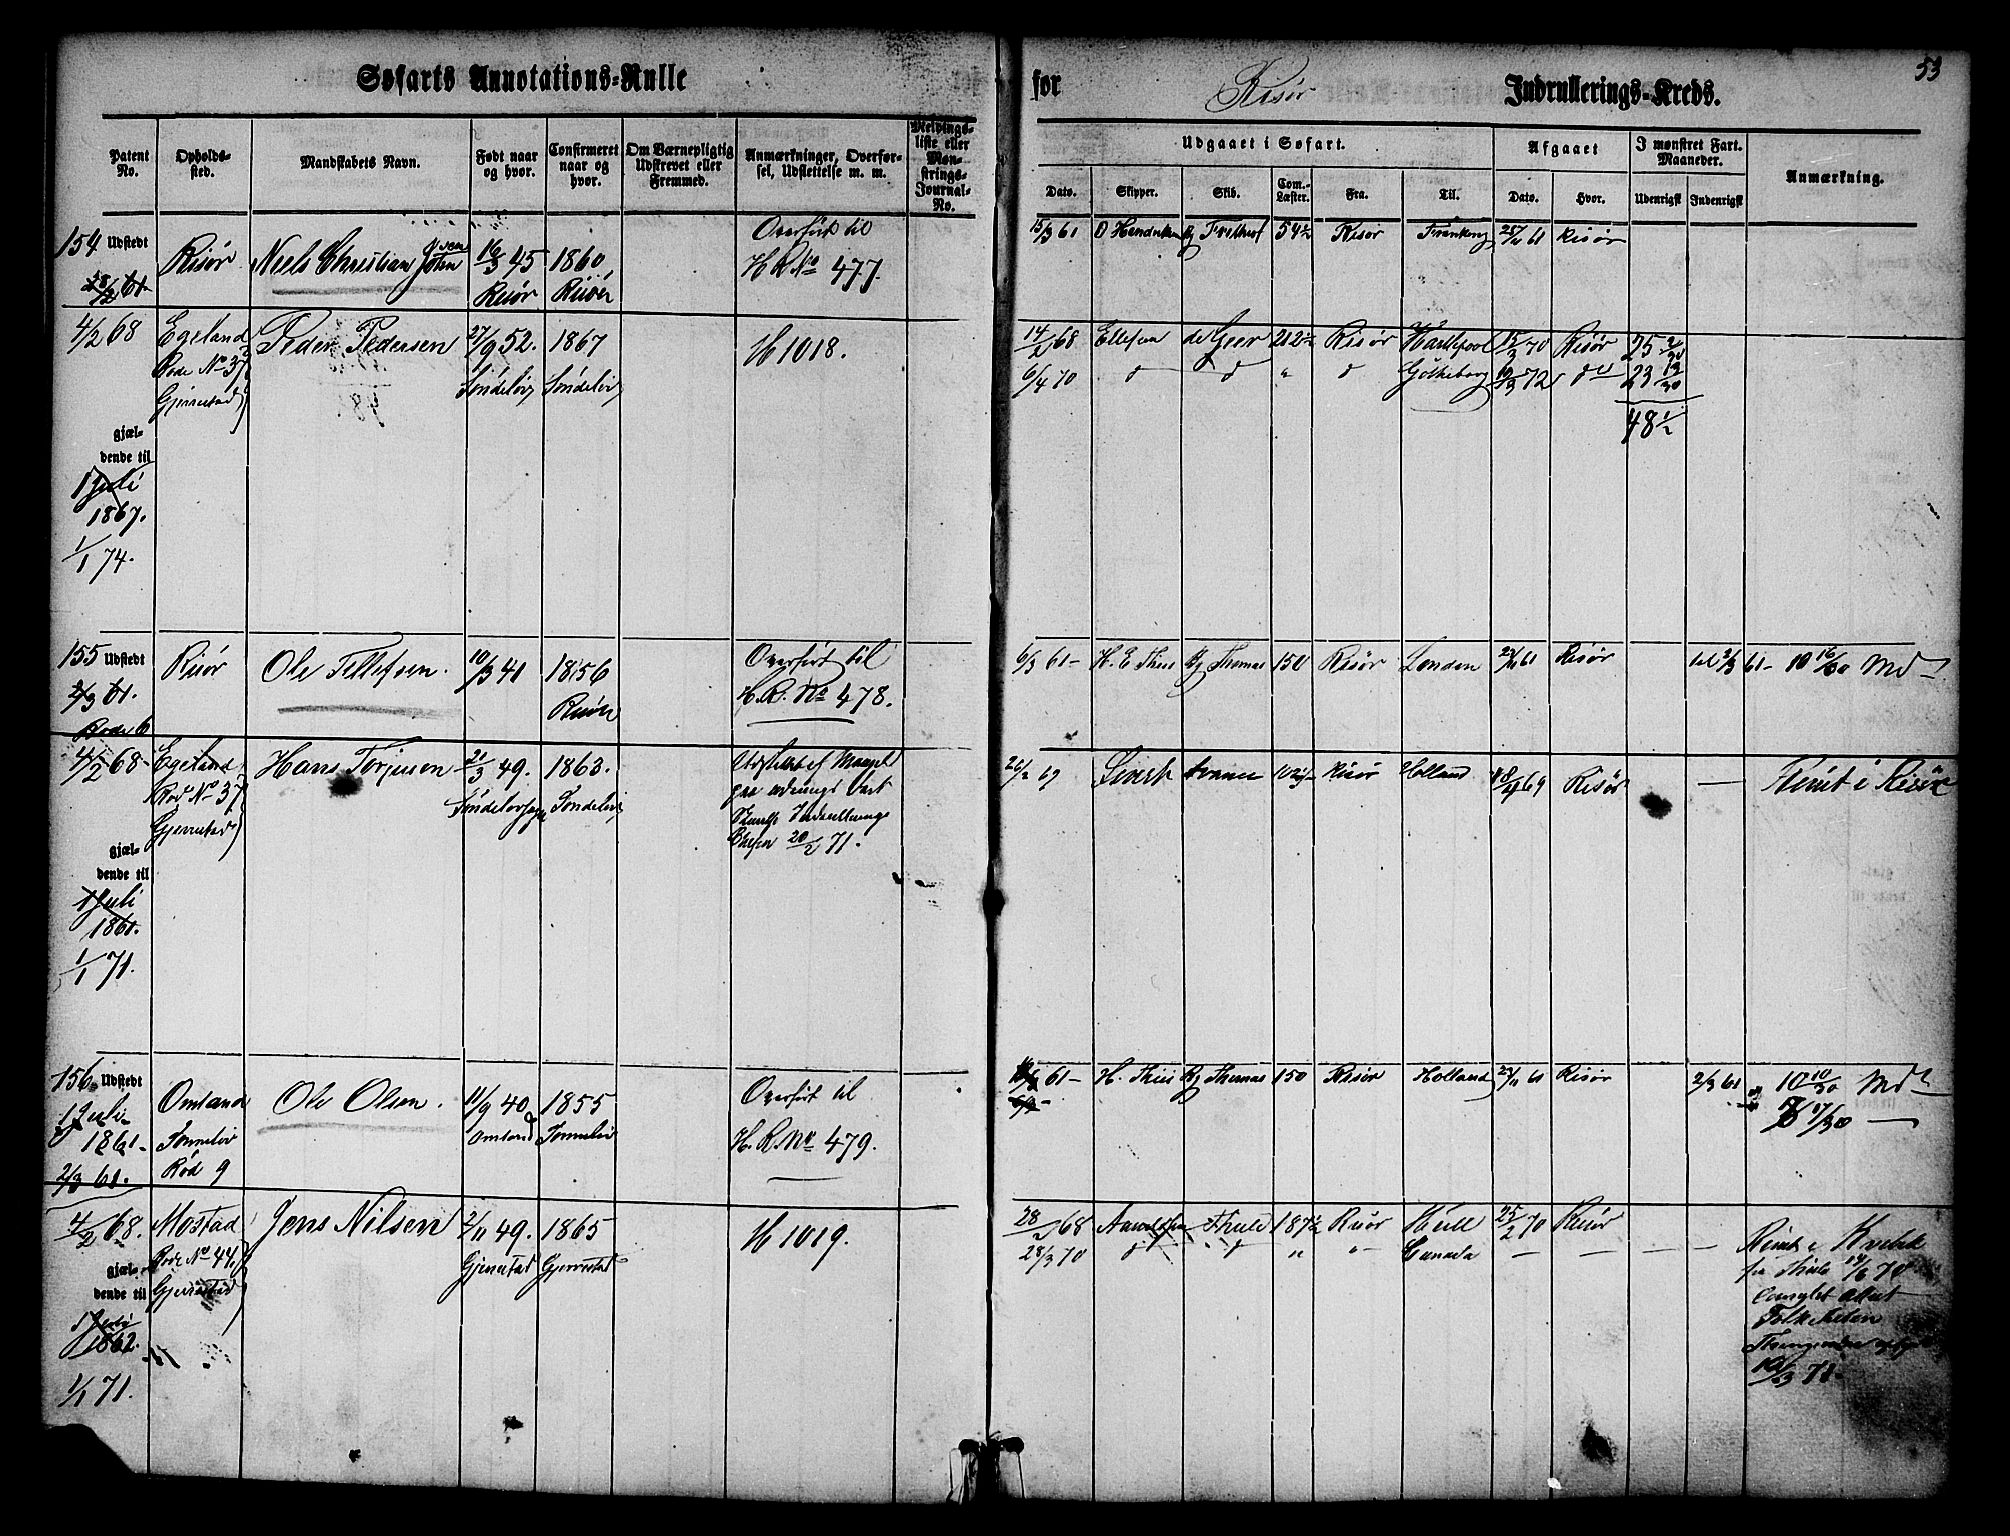 53
Søfarts Annotations-Rulle for Risør Indrullerings-Kreds.
Patent No.
Opholds-sted.
Mandskabets Navn.
Født naar og hvor.
Confirmeret naar og hvor.
Om Værnepligtig Udskrevet eller Fremmed.
Anmærkninger, Overførsel, Udslettelse m. m.
Meldings-liste eller Mønstrings-Journal-No.
Udgaaet i Søfart.
Dato.
Skipper.
Skib.
Com.-Læster.
Fra.
Til.
Afgaaet
Dato.
Hvor.
I mønstret Fart. Maaneder.
Udenrigsk
Indenrigsk
Anmærkning.
154 Udstedt
28/2 61.
Risør
Niels Christian
16/3 45
Risør
1860
Risør
Overført til
H R No 477.
15/3 61 O Hendriksen Frithiof 54½ Risør 61 Risør
4/2 68
Egeland
Rode No 37
Gjerrestad
Peder Pedersen
27/9 52.
Søndeløv
1867
Søndeløv
H 1018.
14/2 68 Ellefsen de Geer 212½ Risør Hartlepool 15/3 70 Risør 25 2/30
6/4 70 d d " d Gøtheborg 19/3 72 do 23 13/30
48½
gjæl-
dende til
1 Juli
1867.
1/1 74.
155 Udstedt
2/3 61.
Rode 6
Risør
Ole Tellefsen.
10/3 41
1856
Risør
Overført til
H. R. No 478.
6/3 61 - H. E. Thiis Bg Thomas 150 Risør London 61 Risør til 2/3 61 - 10 16/30 Md
4/2 68
Egeland
Rod No 37
Gjerrestad
Hans Torjusen
21/3 49.
1863.
Søndeløv
Udslettet af Mangel
paa udenrigs Fart
Indrullerings
Chefen 20/2 71.
26/2 69 Sivert Risør Holland 69 Risør — Rømt i Risør
gjæl-
dende til
1 Juli
1861.
1/1 71.
156 Udstedt
1 Juli
1861
2/3 61.
Omland
Sønneløv
Rød 9
Ole Olsen.
11/9 40
Omland
1855
Sønneløv
Overført til
H. R. No 479.
61 - H. Thiis Bg Thomas 150 Risør Holland 61 Risør 2/3 61 10 10/30 Md
17/30 —
4/2 68.
Mostad
Rode No 44,
Gjerrestad
Jens Nilsen
2/11 49.
Gjerrestad
1865
Gjerrestad
H 1019.
28/2 68 Thule 187½ Risør Hull 25/2 70 Risør
28/3 70 d d " " Canada — — — —
Rømt i
fra Thule 70
19/3 71.
gjæl-
dende til
1 Juli
1862.
1/1 71.